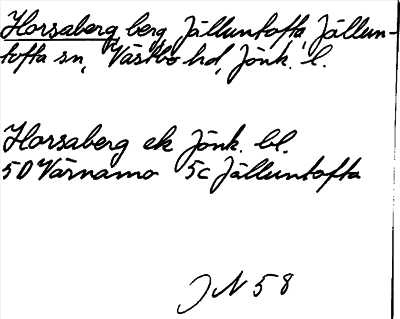 Horsaberg berg, Jälluntofta, Jällun-
tofta sn, Västbo hd, Jönk. l.
Horsaberg ek Jönk. bl.
5D Värnamo 5c Jälluntofta
JN 58